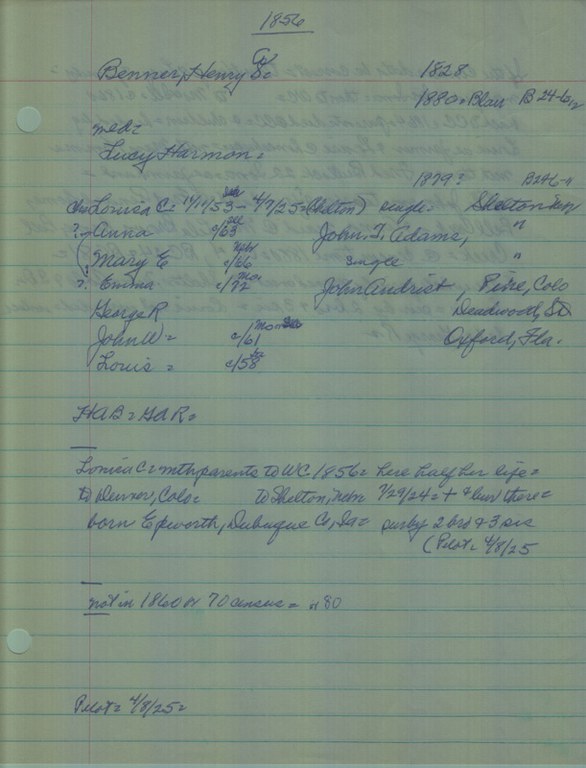 1856
Benner, Henry
1828
1880 = Blair B 24-6
med =
Lucy Harmon =
1879? B246-11
Louisa C = 11/11/53 - 4/7/25 = (Shelton) single. Shelton Neb
? Anna c/63 John T. Adams, "
Mary E c/66 single "
? Emma c/72 John Andrist, Pixre, Colo
George R Deadwood, SD
John W = c/61 Oxford, Fla.
Louis = c/58
HAB = GAR =
Louisa C = mth parents to WC 1856 = here half her life =
to Denver, Colo = to Shelton, Neb 7/29/24 = + & bur there =
born Epworth, Dubuque Co, Ia = surby 2 bro & 3 sis
(Pilot = 4/8/25
not in 1860 or 70 census = in 80
Pilot = 4/8/25 =